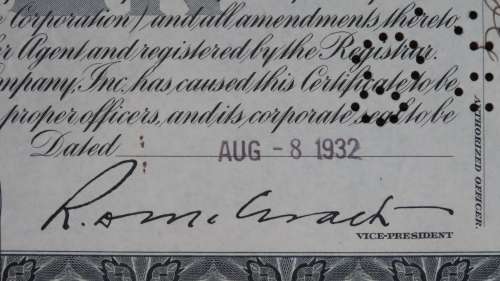 Corporation) and all amendments thereto
Agent and registered by the Registrar.
Company, Inc. has caused this Certificate to be
proper officers, and its corporate seal to be
Dated AUG - 8 1932
VICE-PRESIDENT
AUTHORIZED OFFICER.